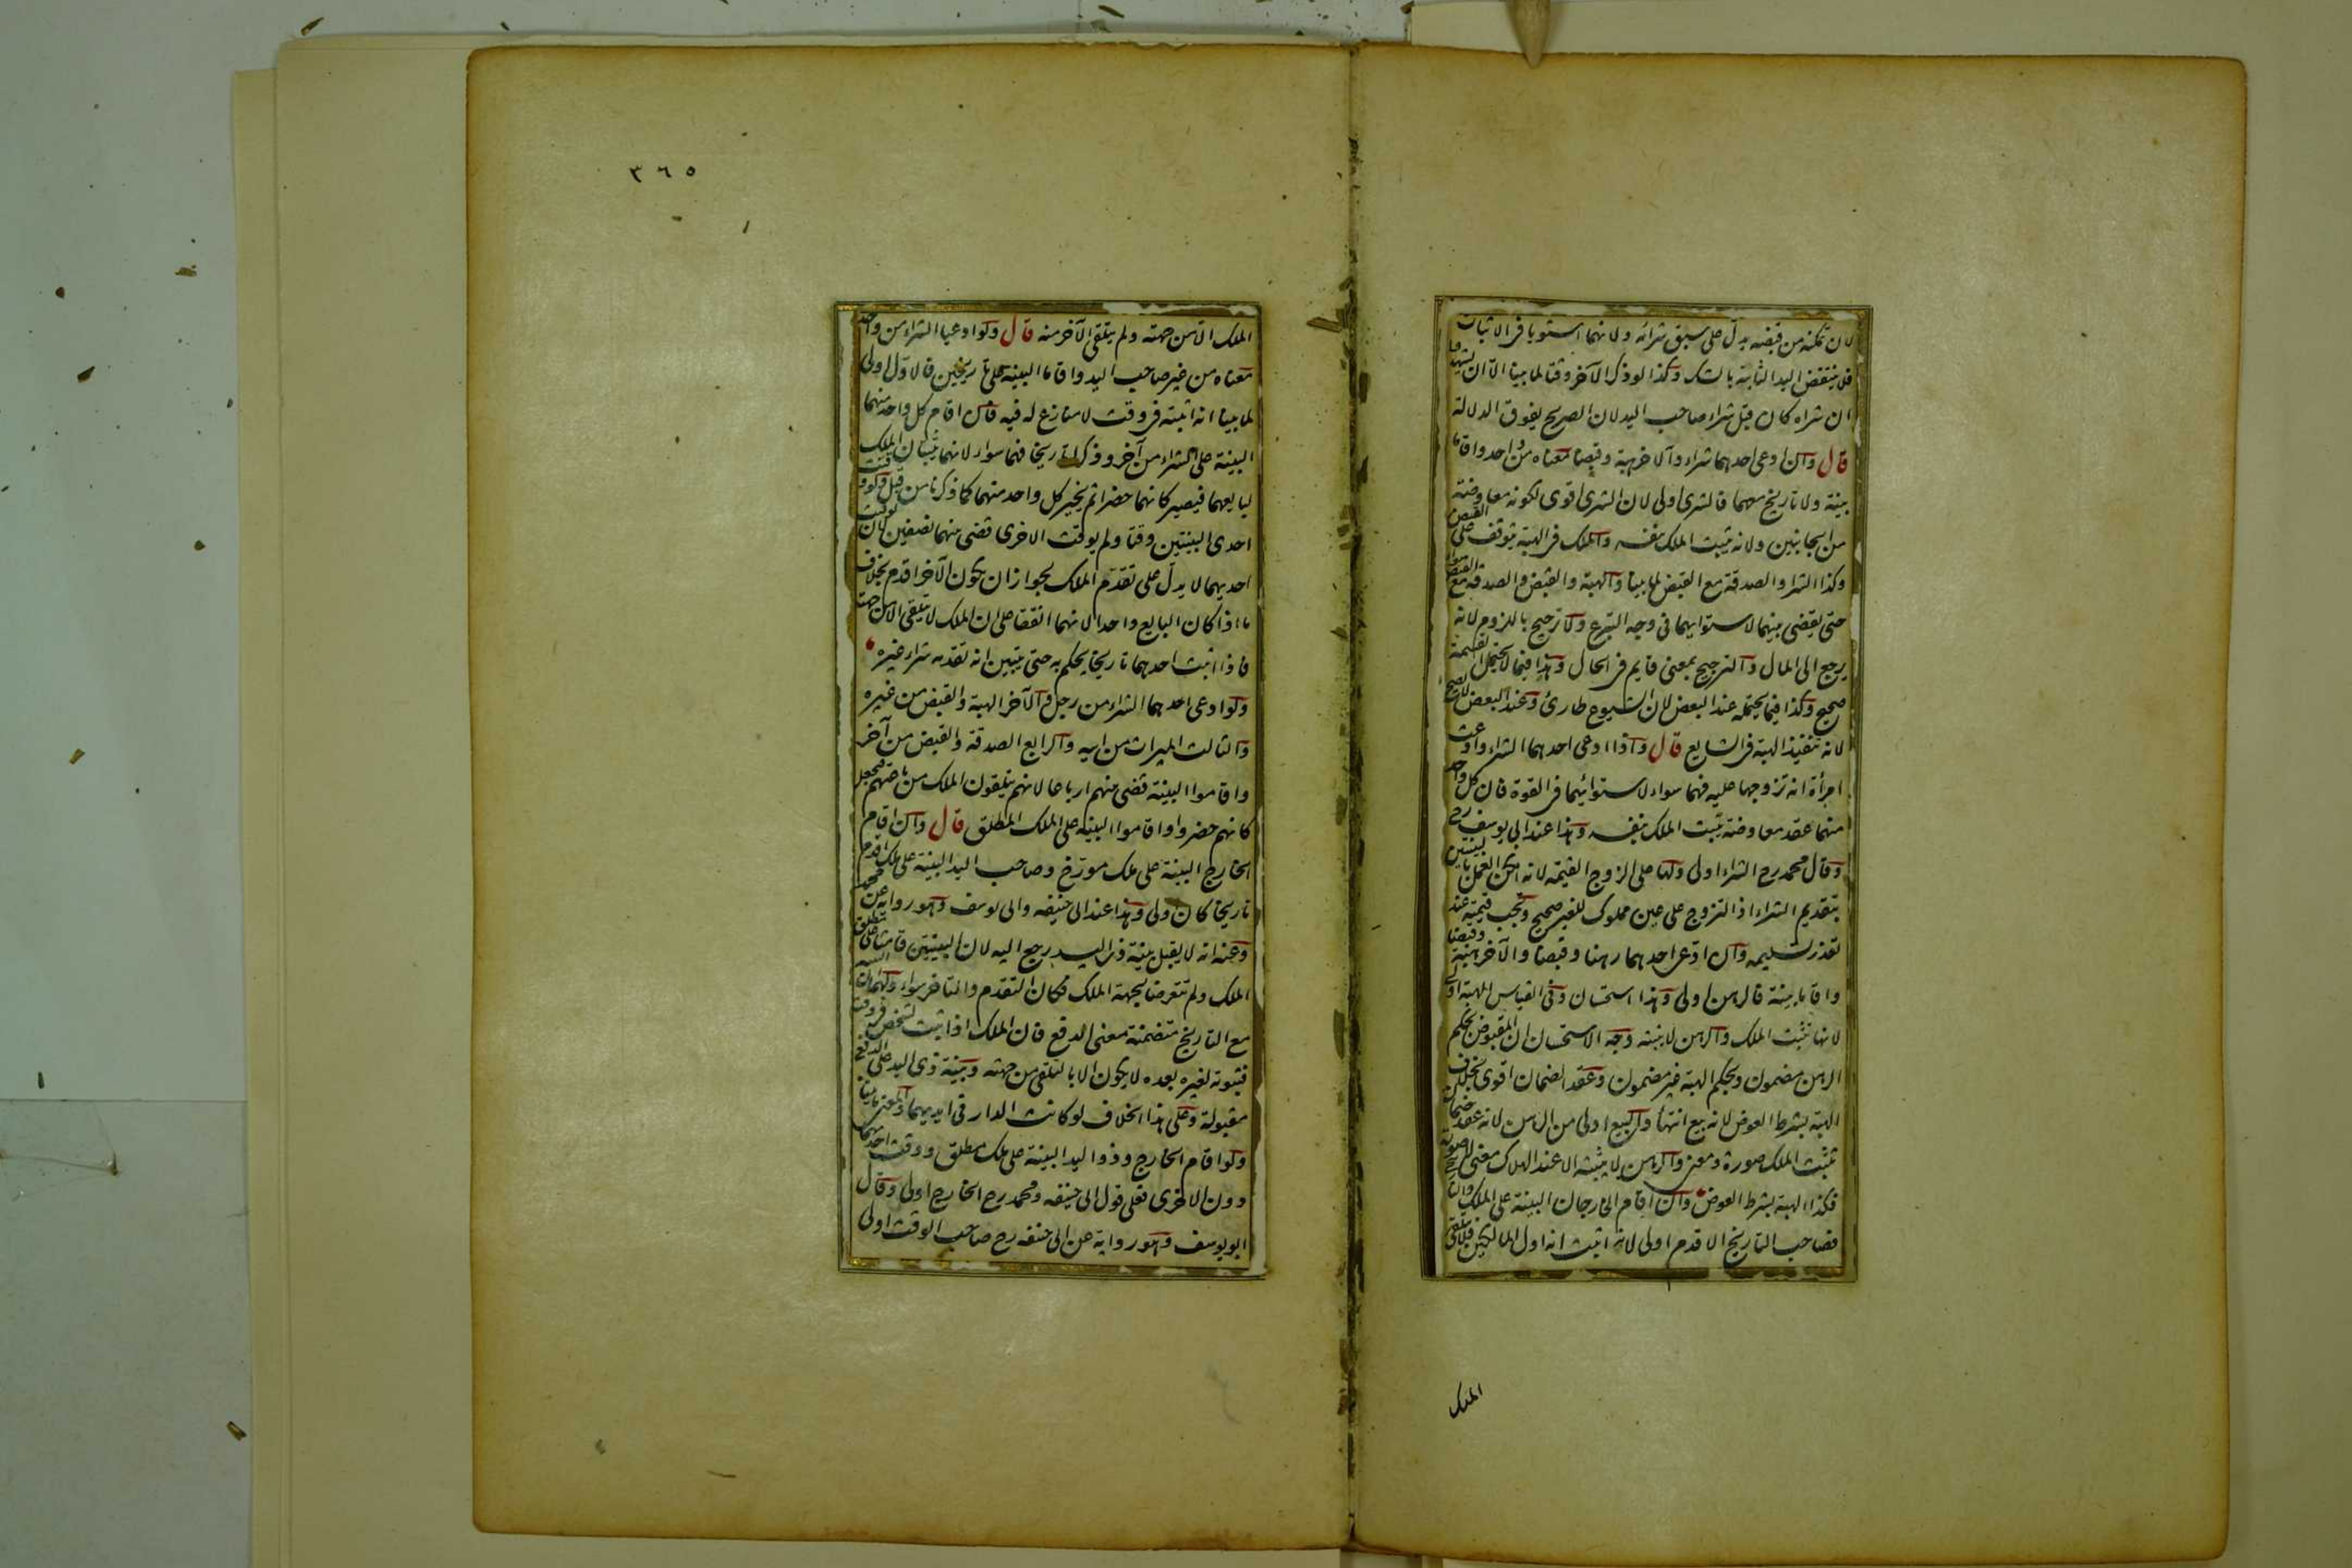 لان تمكنه من قبضه يدل على سبق شرائه ولانهما استويا في الاثبات
فلا ينتقض اليد الثابتة بالشك وكذا لو ذكر الآخر وقتا لما بينا الا ان يشهدوا
ان شراه كان قبل شراء صاحب اليد لان الصريح يفوق الدلالة
قال وان ادعى احدهما شراء والآخر هبة وقبضا معناه من واحد واقاما
بينة ولا تاريخ معهما فالشرى اولى لان الشرى اقوى لكونه معاوضة
من الجانبين ولانه يثبت الملك بنفسه والملك في الهبة يتوقف على القبض
وكذا الشراء والصدقة مع القبض لما بينا والهبة والقبض والصدقة مع القبض سواء
حتى يقضى بينهما لاستوايهما في وجه التبرع ولا ترجيح باللزوم لانه
يرجع الى المال والترجيح بمعنى قايم في الحال وهذا فيما لا يحتمل القسمة
صحيح وكذا فيما يحتمله عند البعض لان الشيوع طارئ وعند البعض لا يصح
لانه تنفيذ الهبة في الشايع قال واذا ادعى احدهما الشراء وادعت
امرأة انه تزوجها عليه فهما سواء لاستوائهما في القوة فان كل واحد
منهما عقد معاوضة يثبت الملك بنفسه وهذا عند ابي يوسف رح
وقال محمد رح الشراء اولى ولها على الزوج القيمة لانه امكن العمل بالبينتين
بتقديم الشراء اذ التزوج على عين مملوك للغير صحيح وتجب قيمته عند
تعذر تسليمه وان ادعى احدهما رهنا وقبضا والآخر هبة وقبضا
واقاما بينة فالرهن اولى وهذا استحسان وفي القياس الهبة اولى
لانها تثبت الملك والرهن لا يثبته وجه الاستحسان ان المقبوض بحكم
الرهن مضمون وبحكم الهبة غير مضمون وعقد الضمان اقوى بخلاف
الهبة بشرط العوض لانه بيع انتهاء والبيع اولى من الرهن لانه عقد ضمان
يثبت الملك صورة ومعنى والرهن لا يثبته الا عند الهلاك معنى لا صورة
فكذا الهبة بشرط العوض وان اقام الخارجان البينة على الملك والتاريخ
فصاحب التاريخ الاقدم اولى لانه اثبت انه اول المالكين فلا يتلقى
الملك
٣٦٥
الملك الا من جهته ولم يتلقى الآخر منه قال ولو ادعيا الشراء من واحد
معناه من غير صاحب اليد واقاما البينة على تاريخين فالاول اولى
لما بينا انه اثبته في وقت لا منازع له فيه فان اقام كل واحد منهما
البينة على الشراء من آخر وذكرا تاريخا فهما سواء لانهما يثبتان الملك
لبايعهما فيصير كانهما حضرا ثم يخير كل واحد منهما كما ذكرنا من قبل ولو وقتت
احدى البينتين وقتا ولم يوقت الاخرى قضى بينهما نصفين لان توقيت
احديهما لا يدل على تقدم الملك لجواز ان يكون الآخر اقدم بخلاف
ما اذا كان البايع واحدا لانهما اتفقا على ان الملك لا يتلقى الا من جهته
فاذا اثبت احدهما تاريخا يحكم به حتى يتبين انه تقدمه شراء غيره
ولو ادعى احدهما الشراء من رجل والآخر الهبة والقبض من غيره
والثالث الميراث من ابيه والرابع الصدقة والقبض من آخر
واقاموا البينة قضى بينهم ارباعا لانهم يتلقون الملك من باعتهم فيجعل
كانهم حضروا واقاموا البينة على الملك المطلق قال وان اقام
الخارج البينة على ملك مورخ وصاحب اليد البينة على ملك اقدم
تاريخا كان اولى وهذا عند ابي حنيفه وابي يوسف وهو رواية عن محمد
وعنه انه لا يقبل بينة ذي اليد رجع اليه لان البينتين قامتا على مطلق
الملك ولم تتعرضا لجهة الملك فكان التقدم والتاخر سواء ولهما ان البينة
مع التاريخ متضمنة معنى الدفع فان الملك اذا ثبت لشخص في وقت
فثبوته لغيره بعده لا يكون الا بالتلقي من جهته وبينة ذي اليد على الدفع
مقبولة وعلى هذا الخلاف لو كانت الدار في ايديهما والمعنى ما بينا
ولو اقام الخارج وذو اليد البينة على ملك مطلق ووقت احديهما
دون الاخرى فعلى قول ابي حنيفه ومحمد رح الخارج اولى وقال
ابو يوسف وهو رواية عن ابي حنيفه رح صاحب الوقت اولى